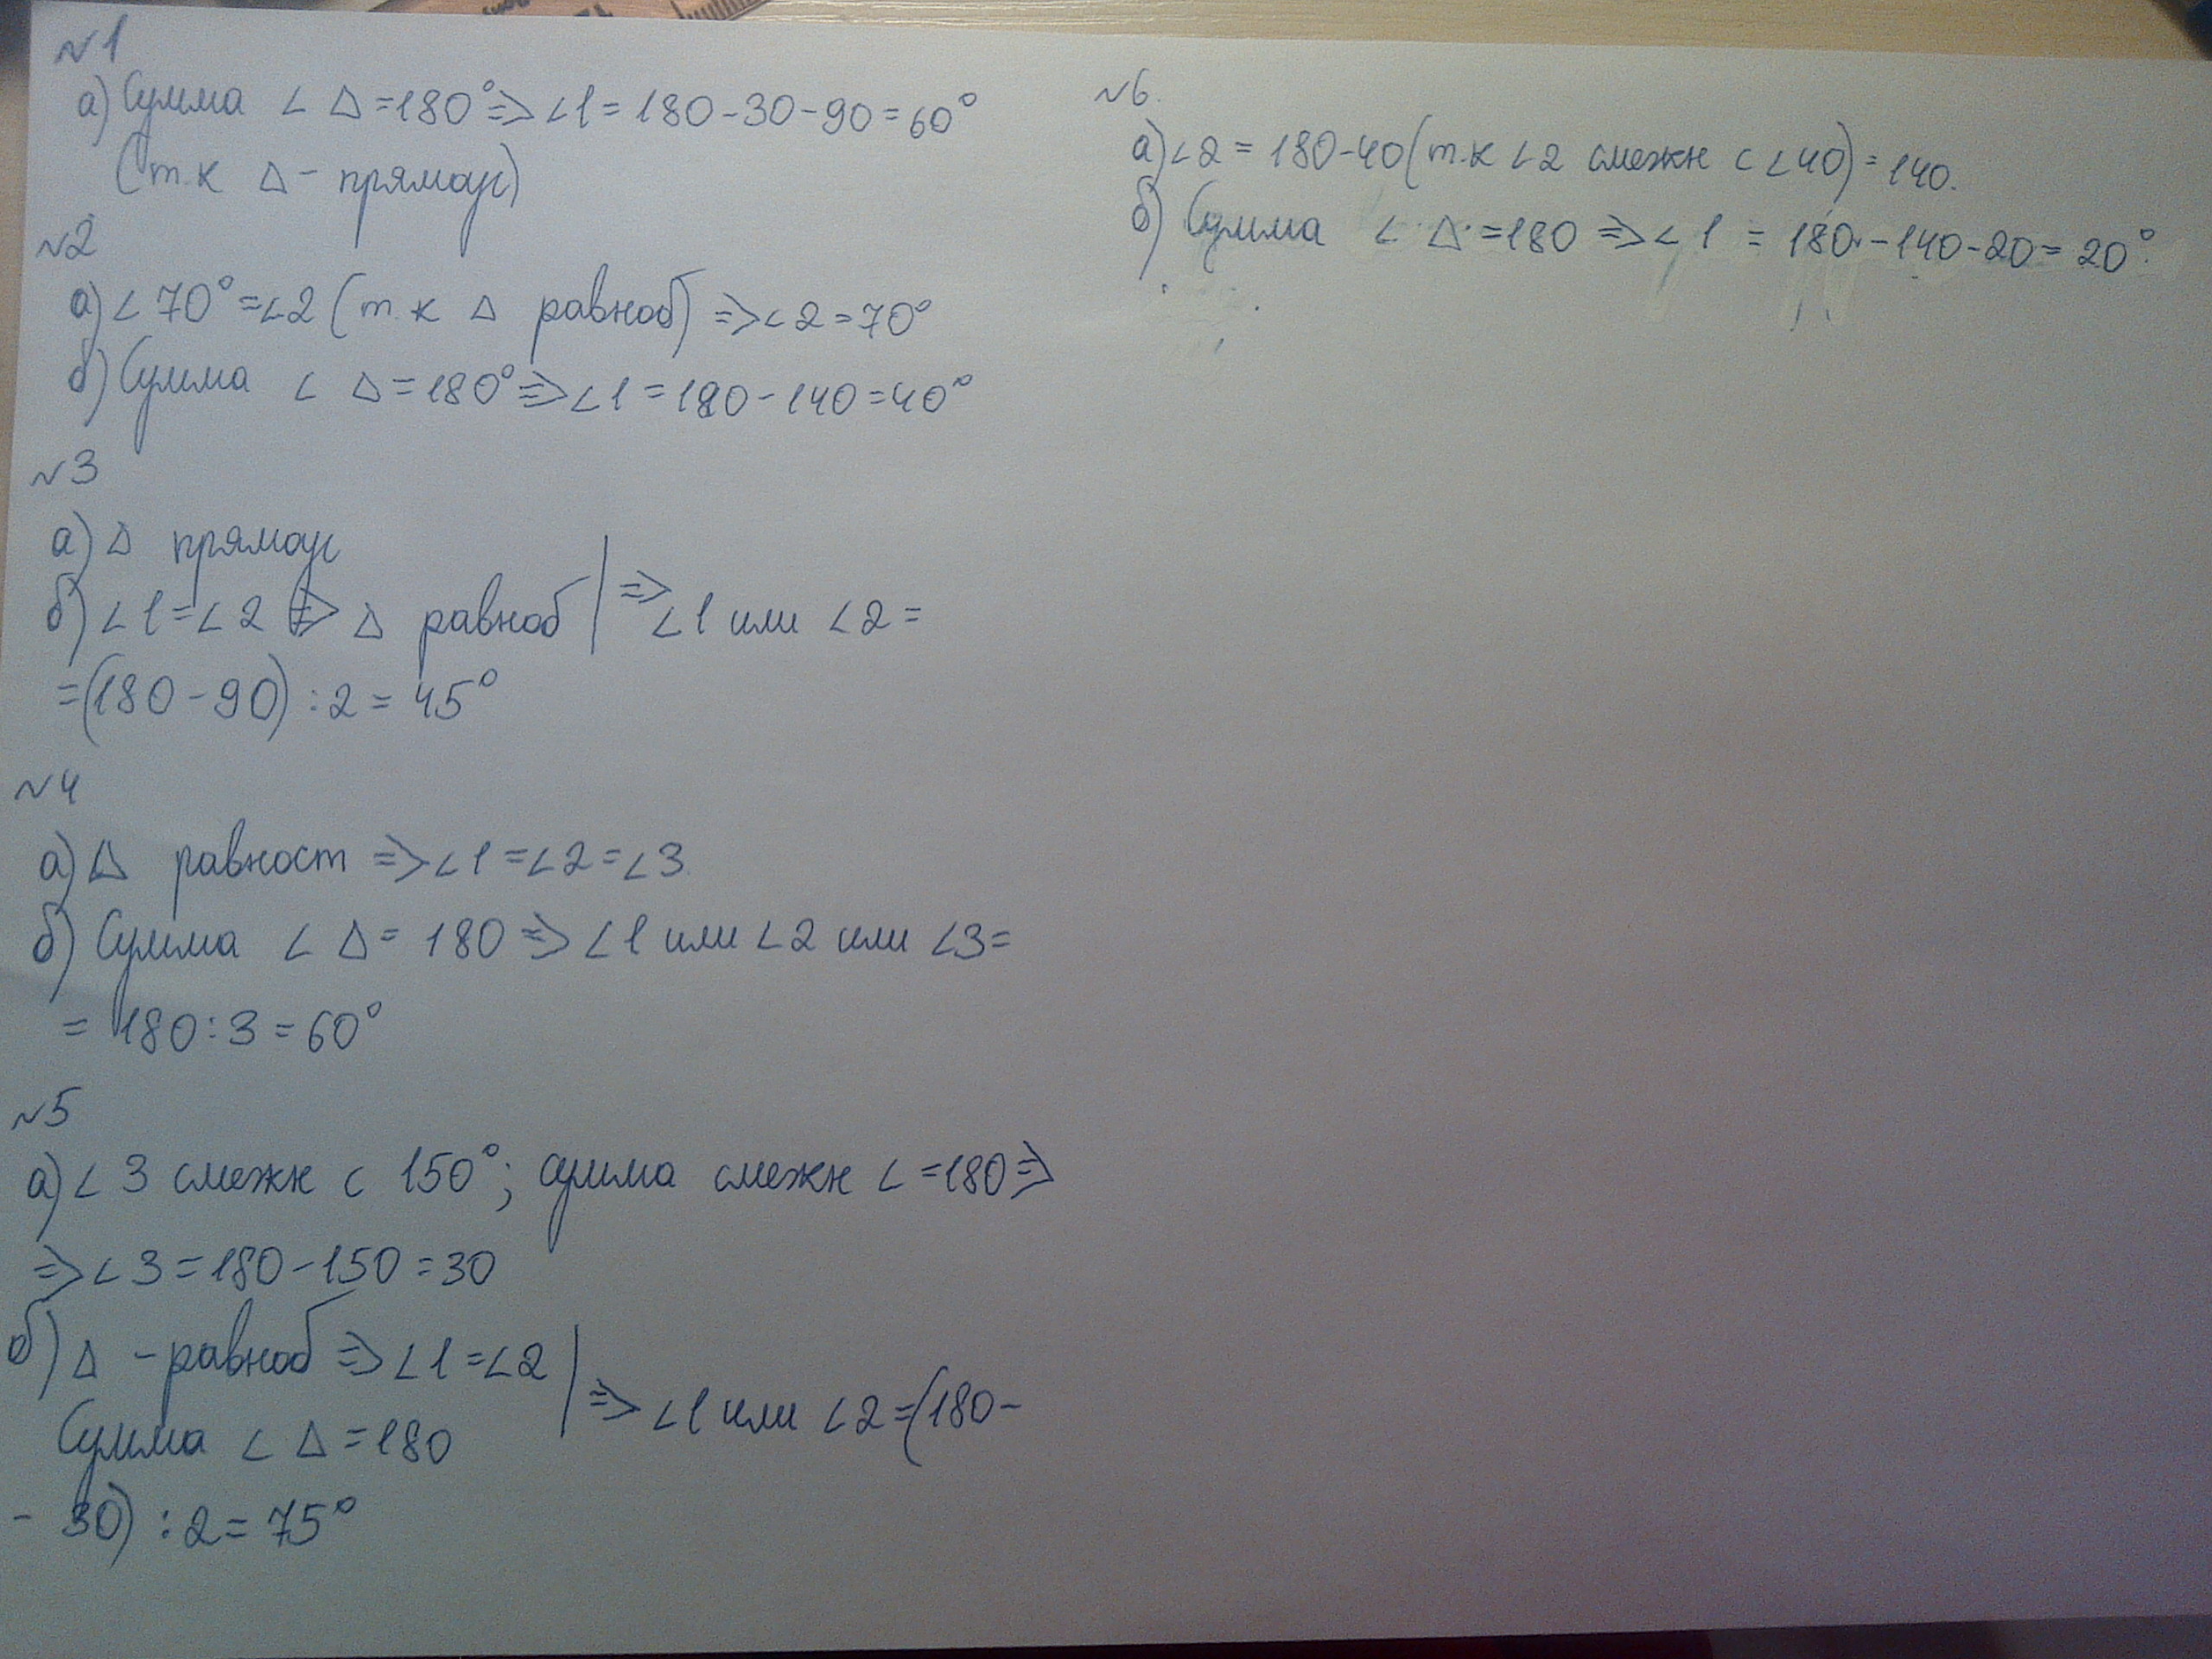 №1
а) Сумма ∠ △ = 180° => ∠1 = 180 - 30 - 90 = 60°
(т.к △ - прямоуг)
№2
а) ∠70° = ∠2 (т.к △ равноб) => ∠2 = 70°
б) Сумма ∠ △ = 180° => ∠1 = 180 - 140 = 40°
№3
а) △ прямоуг
б) ∠1 = ∠2 => △ равноб | => ∠1 или ∠2 =
= (180 - 90) : 2 = 45°
№4
а) △ равност => ∠1 = ∠2 = ∠3
б) Сумма ∠ △ = 180 => ∠1 или ∠2 или ∠3 =
= 180 : 3 = 60°
№5
а) ∠3 смежн с 150°; сумма смежн ∠ = 180 =>
=> ∠3 = 180 - 150 = 30
б) △ - равноб => ∠1 = ∠2
Сумма ∠ △ = 180 | => ∠1 или ∠2 = (180 -
- 30) : 2 = 75°
№6.
а) ∠2 = 180 - 40 (т.к ∠2 смежн с ∠40) = 140.
б) Сумма ∠ △ = 180 => ∠1 = 180 - 140 - 20 = 20°.